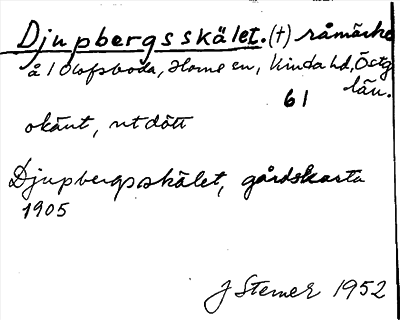 Djupbergsskälet. (+) råmärke
å 1 Olofsboda, Horne sn, Kinda hd, Östg
län.
61
okänt, utdött
Djupbergsskälet, gårdskarta
1905
J Sterner 1952